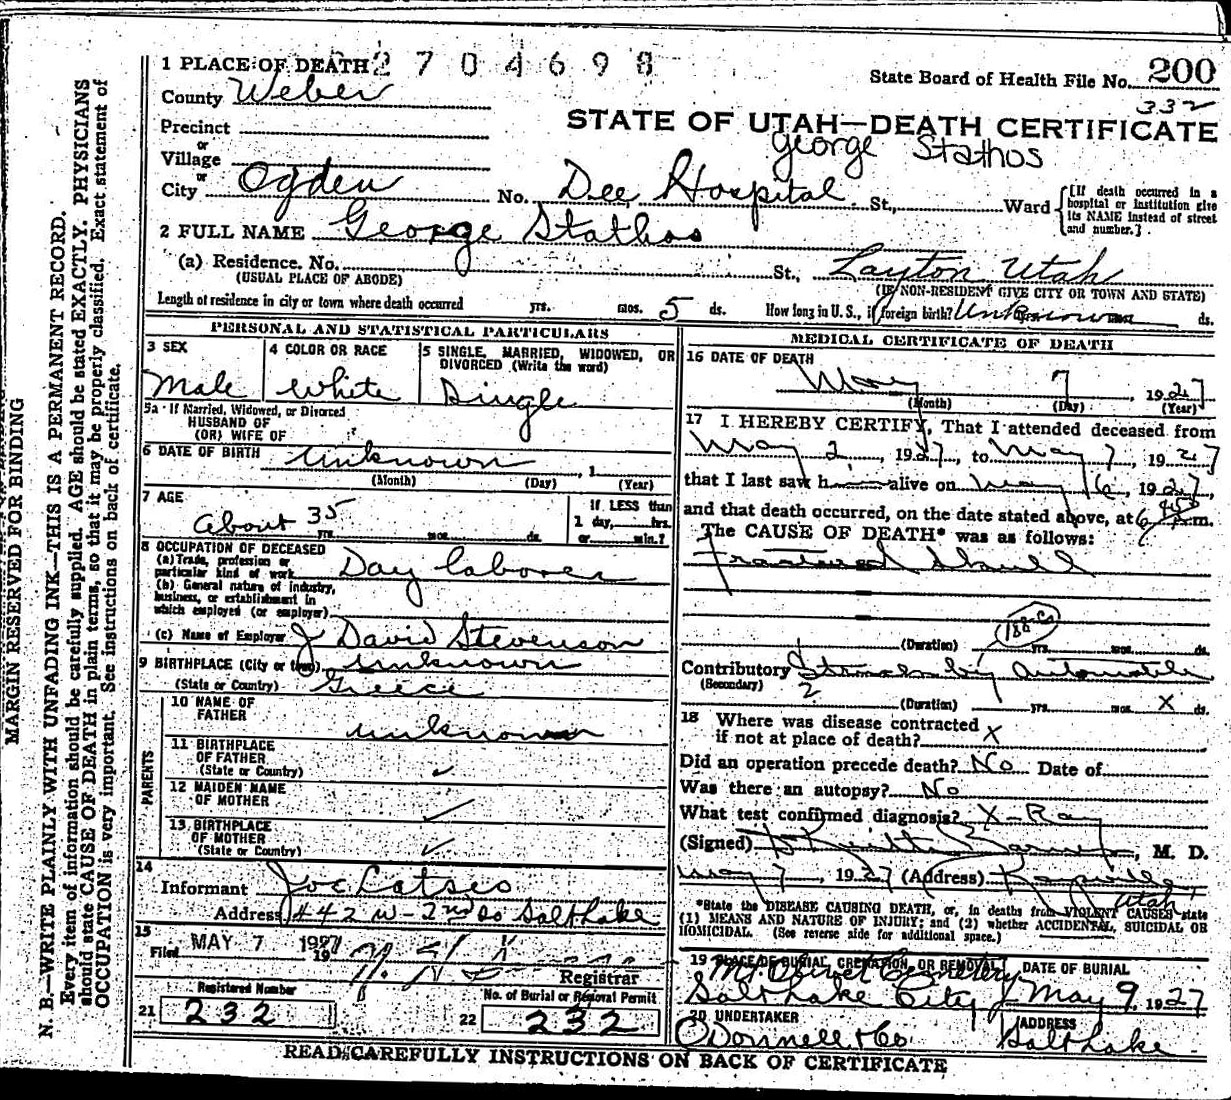 1 PLACE OF DEATH 2704698
State Board of Health File No. 200
332
County Weber
STATE OF UTAH—DEATH CERTIFICATE
George Stathos
Precinct
or
Village
or
City Ogden No. Dee Hospital St., Ward
[If death occurred in a hospital or institution give its NAME instead of street and number.]
2 FULL NAME George Stathos
(a) Residence. No. St., Layton Utah
(USUAL PLACE OF ABODE) (IF NON-RESIDENT GIVE CITY OR TOWN AND STATE)
Length of residence in city or town where death occurred yrs. mos. 5 ds. How long in U. S., if foreign birth? Unknown ds.
PERSONAL AND STATISTICAL PARTICULARS
3 SEX Male
4 COLOR OR RACE White
5 SINGLE, MARRIED, WIDOWED, OR DIVORCED (Write the word) Single
5a If Married, Widowed, or Divorced
HUSBAND OF
(OR) WIFE OF
6 DATE OF BIRTH Unknown , 1
(Month) (Day) (Year)
7 AGE About 35 yrs. mos. ds.
If LESS than
1 day, hrs.
or min.?
8 OCCUPATION OF DECEASED
(a) Trade, profession or
particular kind of work Day laborer
(b) General nature of industry,
business, or establishment in
which employed (or employer)
(c) Name of Employer J David Stevenson
9 BIRTHPLACE (City or town) Unknown
(State or Country) Greece
PARENTS
10 NAME OF
FATHER Unknown
11 BIRTHPLACE
OF FATHER
(State or Country) ✓
12 MAIDEN NAME
OF MOTHER ✓
13 BIRTHPLACE
OF MOTHER
(State or Country) ✓
14
Informant Joe Latseo
Address 442 W - 2nd So Salt Lake
15
Filed MAY 7 1927
Registrar
Registered Number
21 232
No. of Burial or Removal Permit
22 232
MEDICAL CERTIFICATE OF DEATH
16 DATE OF DEATH
May 7, 1927
(Month) (Day) (Year)
17 I HEREBY CERTIFY, That I attended deceased from
May 2, 1927, to May 7, 1927
that I last saw h alive on May 6, 1927,
and that death occurred, on the date stated above, at 6 m.
The CAUSE OF DEATH* was as follows:
Fractured Skull
188-c
(Duration) yrs. mos. ds.
Contributory Struck by Automobile
(Secondary) 2
(Duration) yrs. mos. X ds.
18 Where was disease contracted
if not at place of death? X
Did an operation precede death? No Date of
Was there an autopsy? No
What test confirmed diagnosis? X-Ray
(Signed) , M. D.
May 7, 1927 (Address) Kaysville, Utah
*State the DISEASE CAUSING DEATH, or, in deaths from VIOLENT CAUSES state
(1) MEANS AND NATURE OF INJURY; and (2) whether ACCIDENTAL, SUICIDAL OR
HOMICIDAL. (See reverse side for additional space.)
19 PLACE OF BURIAL, CREMATION, OR REMOVAL DATE OF BURIAL
Mt. Olivet Cemetery
Salt Lake City May 9, 1927
20 UNDERTAKER ADDRESS
O'Donnell & Co. Salt Lake
READ CAREFULLY INSTRUCTIONS ON BACK OF CERTIFICATE
MARGIN RESERVED FOR BINDING
N. B.—WRITE PLAINLY WITH UNFADING INK—THIS IS A PERMANENT RECORD.
Every item of information should be carefully supplied. AGE should be stated EXACTLY. PHYSICIANS
should state CAUSE OF DEATH in plain terms, so that it may be properly classified. Exact statement of
OCCUPATION is very important. See instructions on back of certificate.